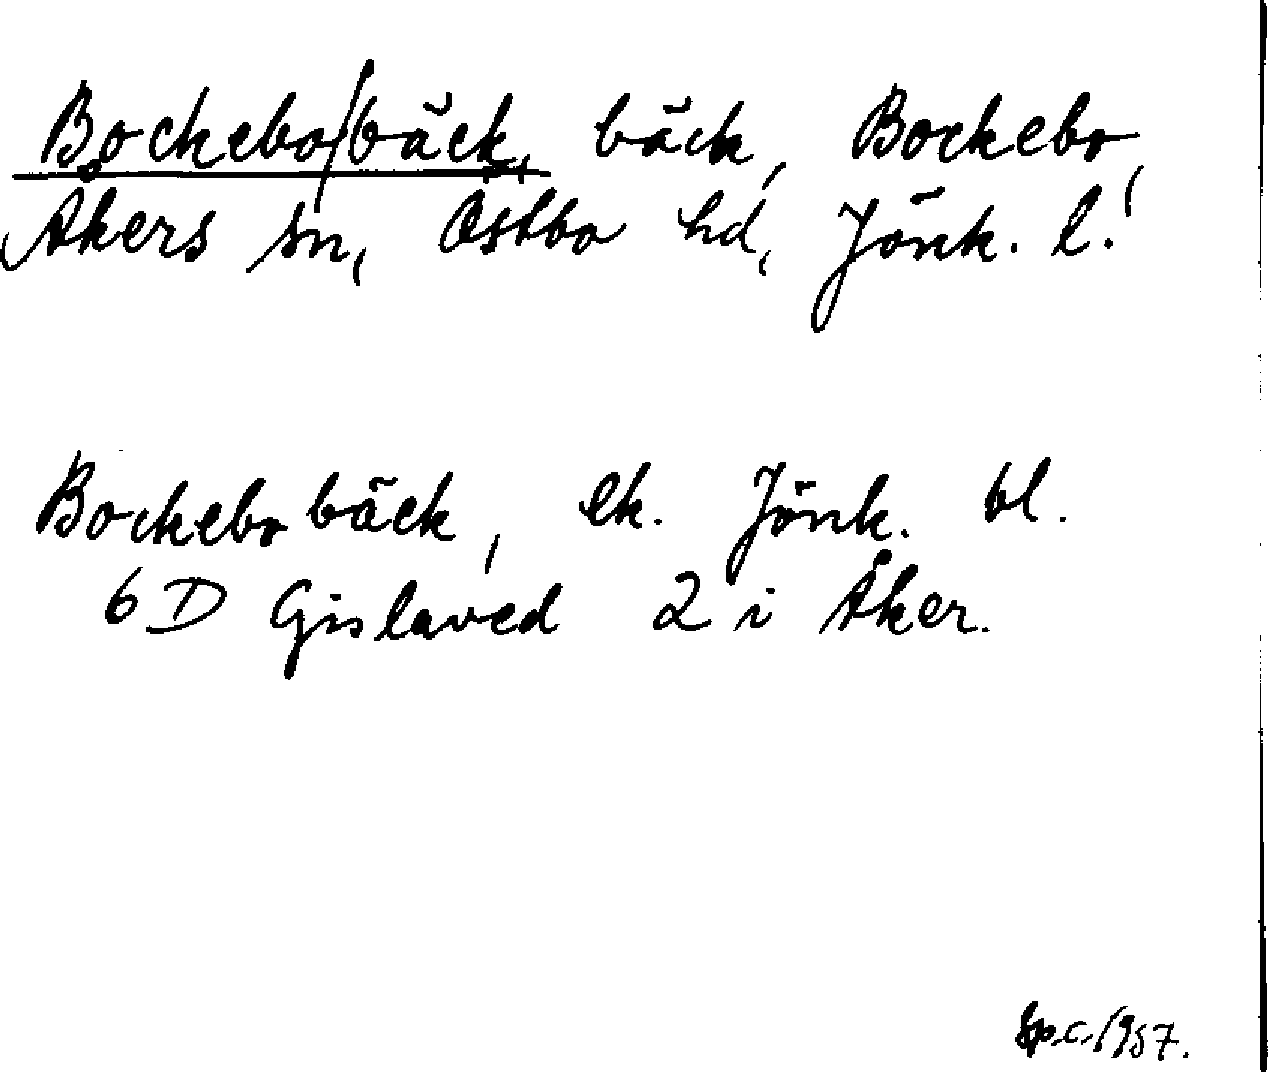 Bockebo/bäck, bäck, Bockebo,
Åkers sn, Östbo hd, Jönk. l.
Bockebo bäck, ek. Jönk. bl.
6 D Gislaved 2 i Åker.
1957.